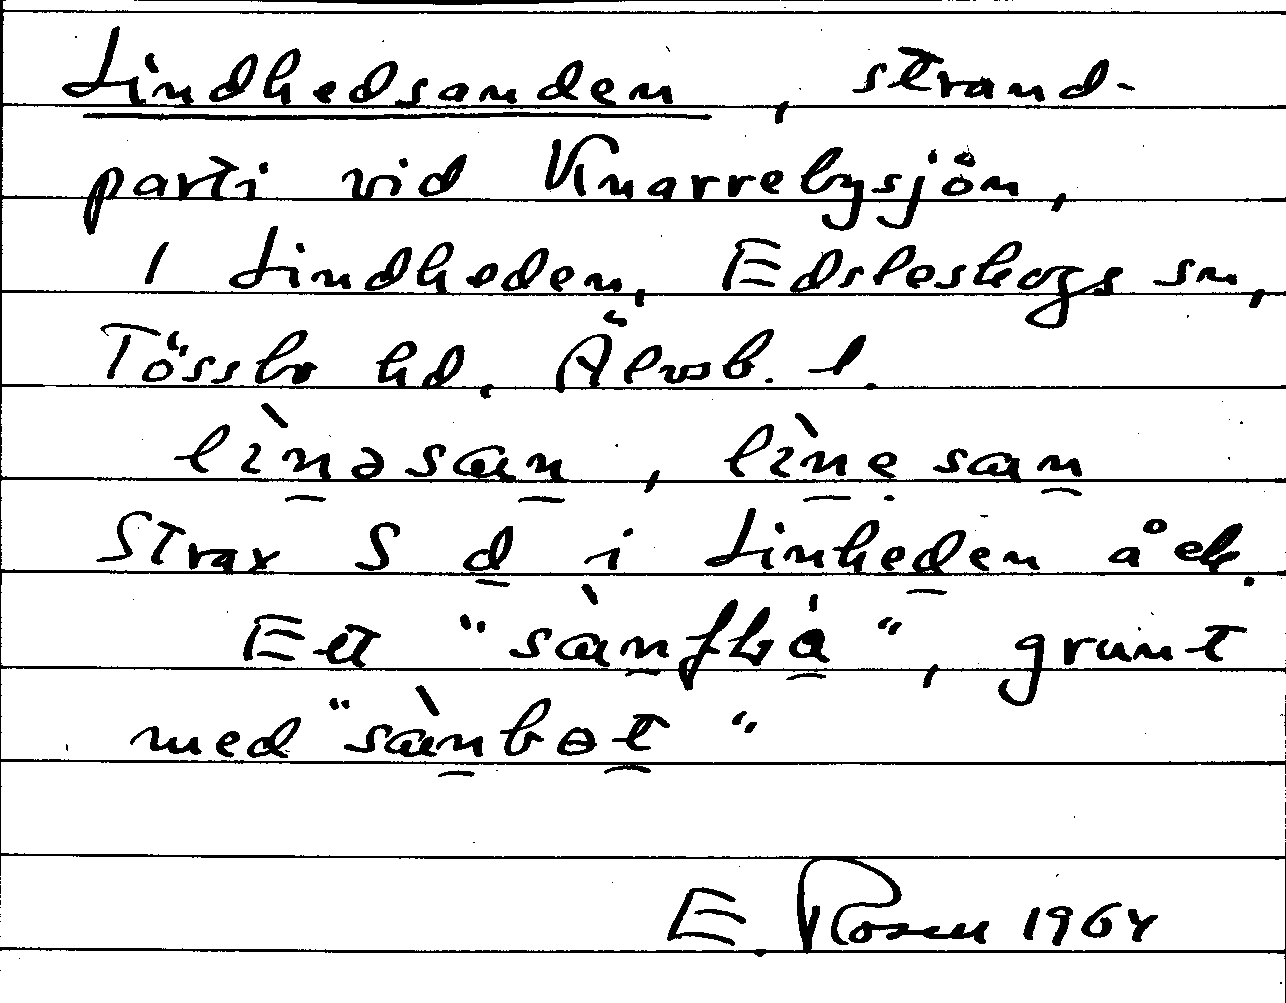 Lindhedsanden, strand-
parti vid Knarrebysjön,
1 Lindheden, Edsleskogs sn,
Tössbo hd. Älvsb. l.
lìnəsan, lìnesan
Strax S d i Linheden å ek.
Ett "sànflɷ̀", grunt
med "sànbɵt"
E. Rosén 1964